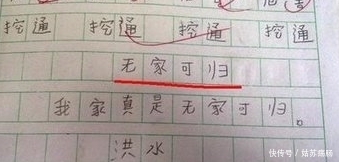 挖通 挖通 挖通 挖通
无家可归
我家真是无家可归。
洪水
快传号/姑苏南杨